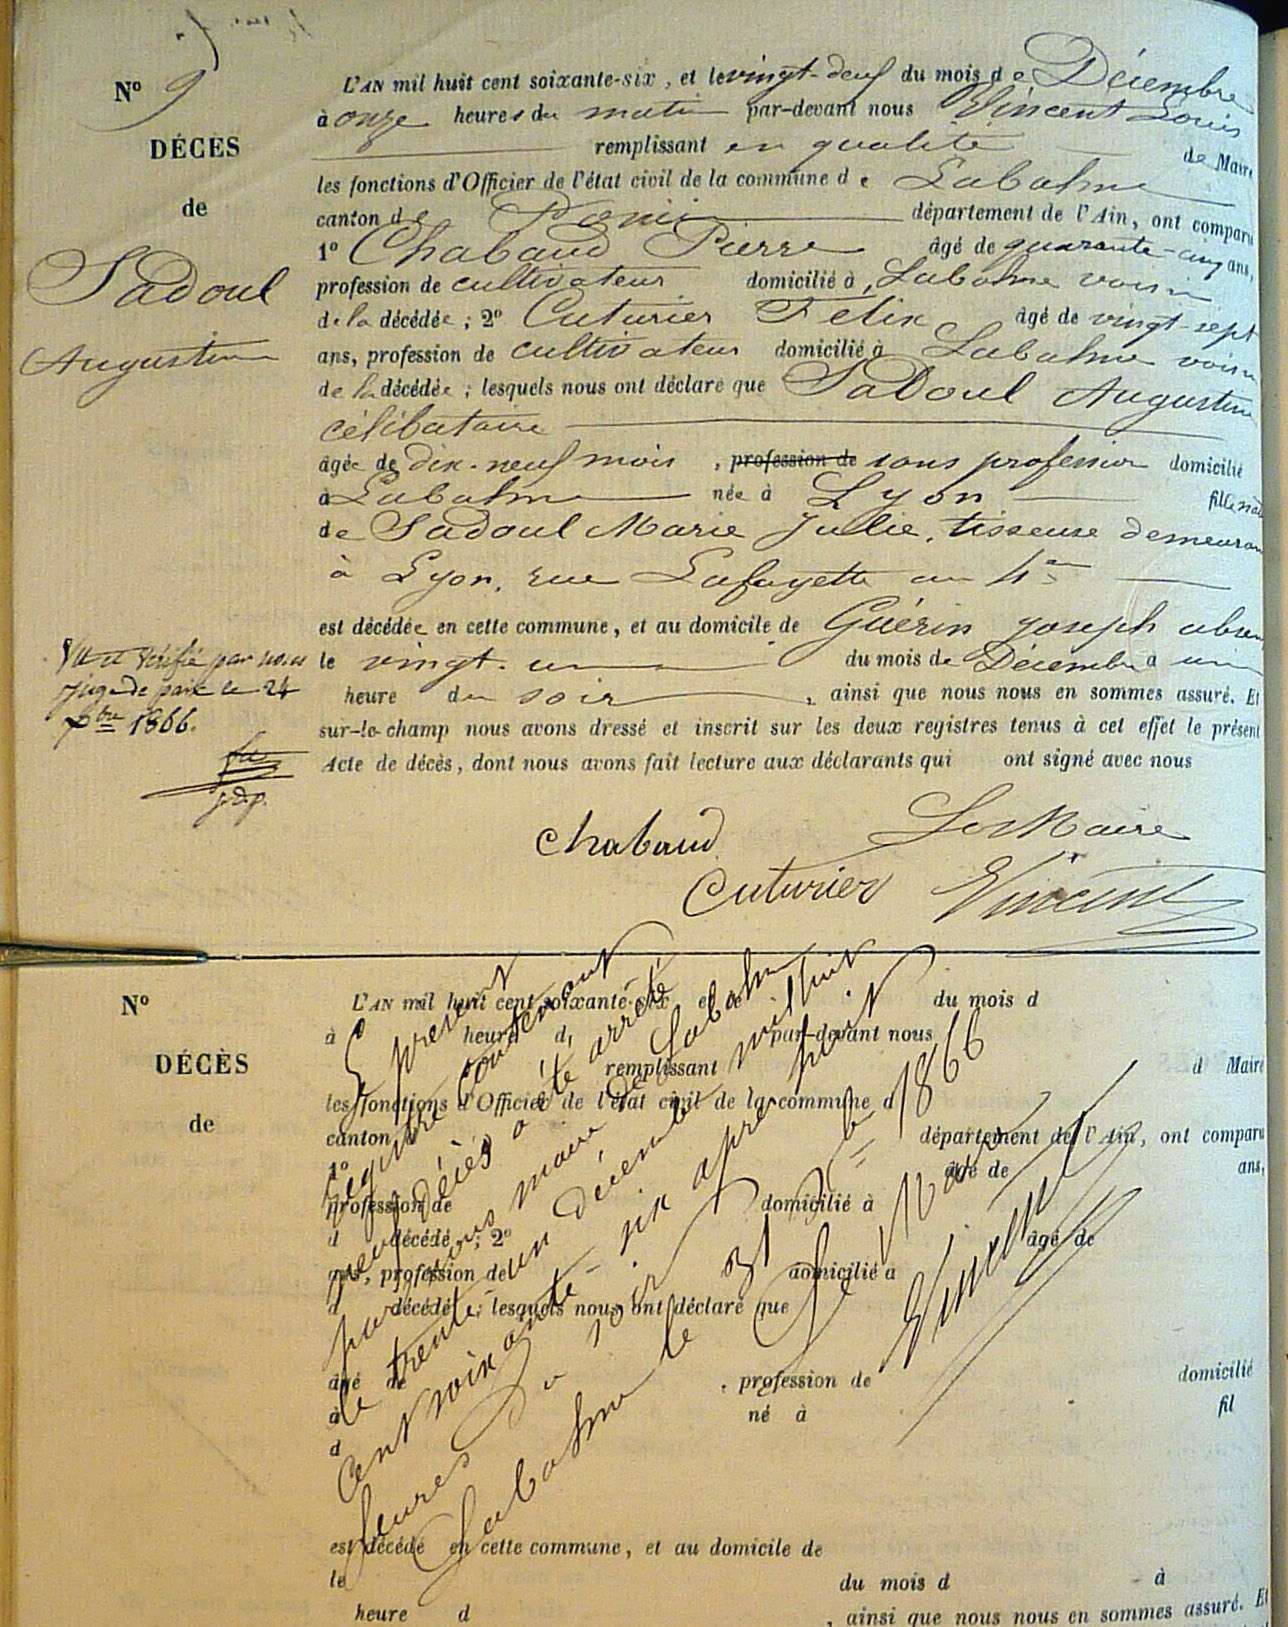 N° 9
DÉCÈS
de
Sadoul
Augustine
L'AN mil huit cent soixante-six, et le vingt-deux du mois de Décembre
à onze heures du matin par-devant nous Vincent Louis
remplissant en qualité de Maire
les fonctions d'Officier de l'état civil de la commune de Labalme
canton de Poncin département de l'Ain, ont comparu
1° Chabaud Pierre âgé de quarante-cinq ans,
profession de cultivateur domicilié à Labalme voisin
de la décédée ; 2° Cuturier Felix âgé de vingt-sept
ans, profession de cultivateur domicilié à Labalme voisin
de la décédée ; lesquels nous ont déclaré que Sadoul Augustine
célibataire
âgée de dix-neuf mois, profession de sans profession domicilié
à Labalme née à Lyon fille nat
de Sadoul Marie Julie, tisseuse demeuran
à Lyon, rue Lafayette au
est décédée en cette commune, et au domicile de Guérin Joseph absen
le vingt-un du mois de Décembre à une
heure du soir, ainsi que nous nous en sommes assuré. Et
sur-le-champ nous avons dressé et inscrit sur les deux registres tenus à cet effet le présent
Acte de décès, dont nous avons fait lecture aux déclarants qui ont signé avec nous
Vu et vérifié par nous
juge de paix le 24
1866.
j.d.p.
Chabaud Le Maire
Cuturier Vincent
N°
DÉCÈS
de
L'AN mil huit cent soixante-six et le du mois d
à heure d par-devant nous
remplissant d Maire
les fonctions d'Officier de l'état civil de la commune d
canton d département de l'Ain, ont comparu
1° âgé de ans,
profession de domicilié à
d décédé ; 2° âgé de
ans, profession de domicilié à
d décédé ; lesquels nous ont déclaré que
âgé de , profession de domicilié
à né à fil
d
est décédé en cette commune, et au domicile de
le du mois d à
heure d , ainsi que nous nous en sommes assuré. Et
Le présent
registre contenant
neuf décès a été arrêté
par nous maire de Labalme
le trente-un décembre mil huit
cent soixante-six après huit
heures du soir
Labalme le 31 Xbre 1866
Le Maire
Vincent